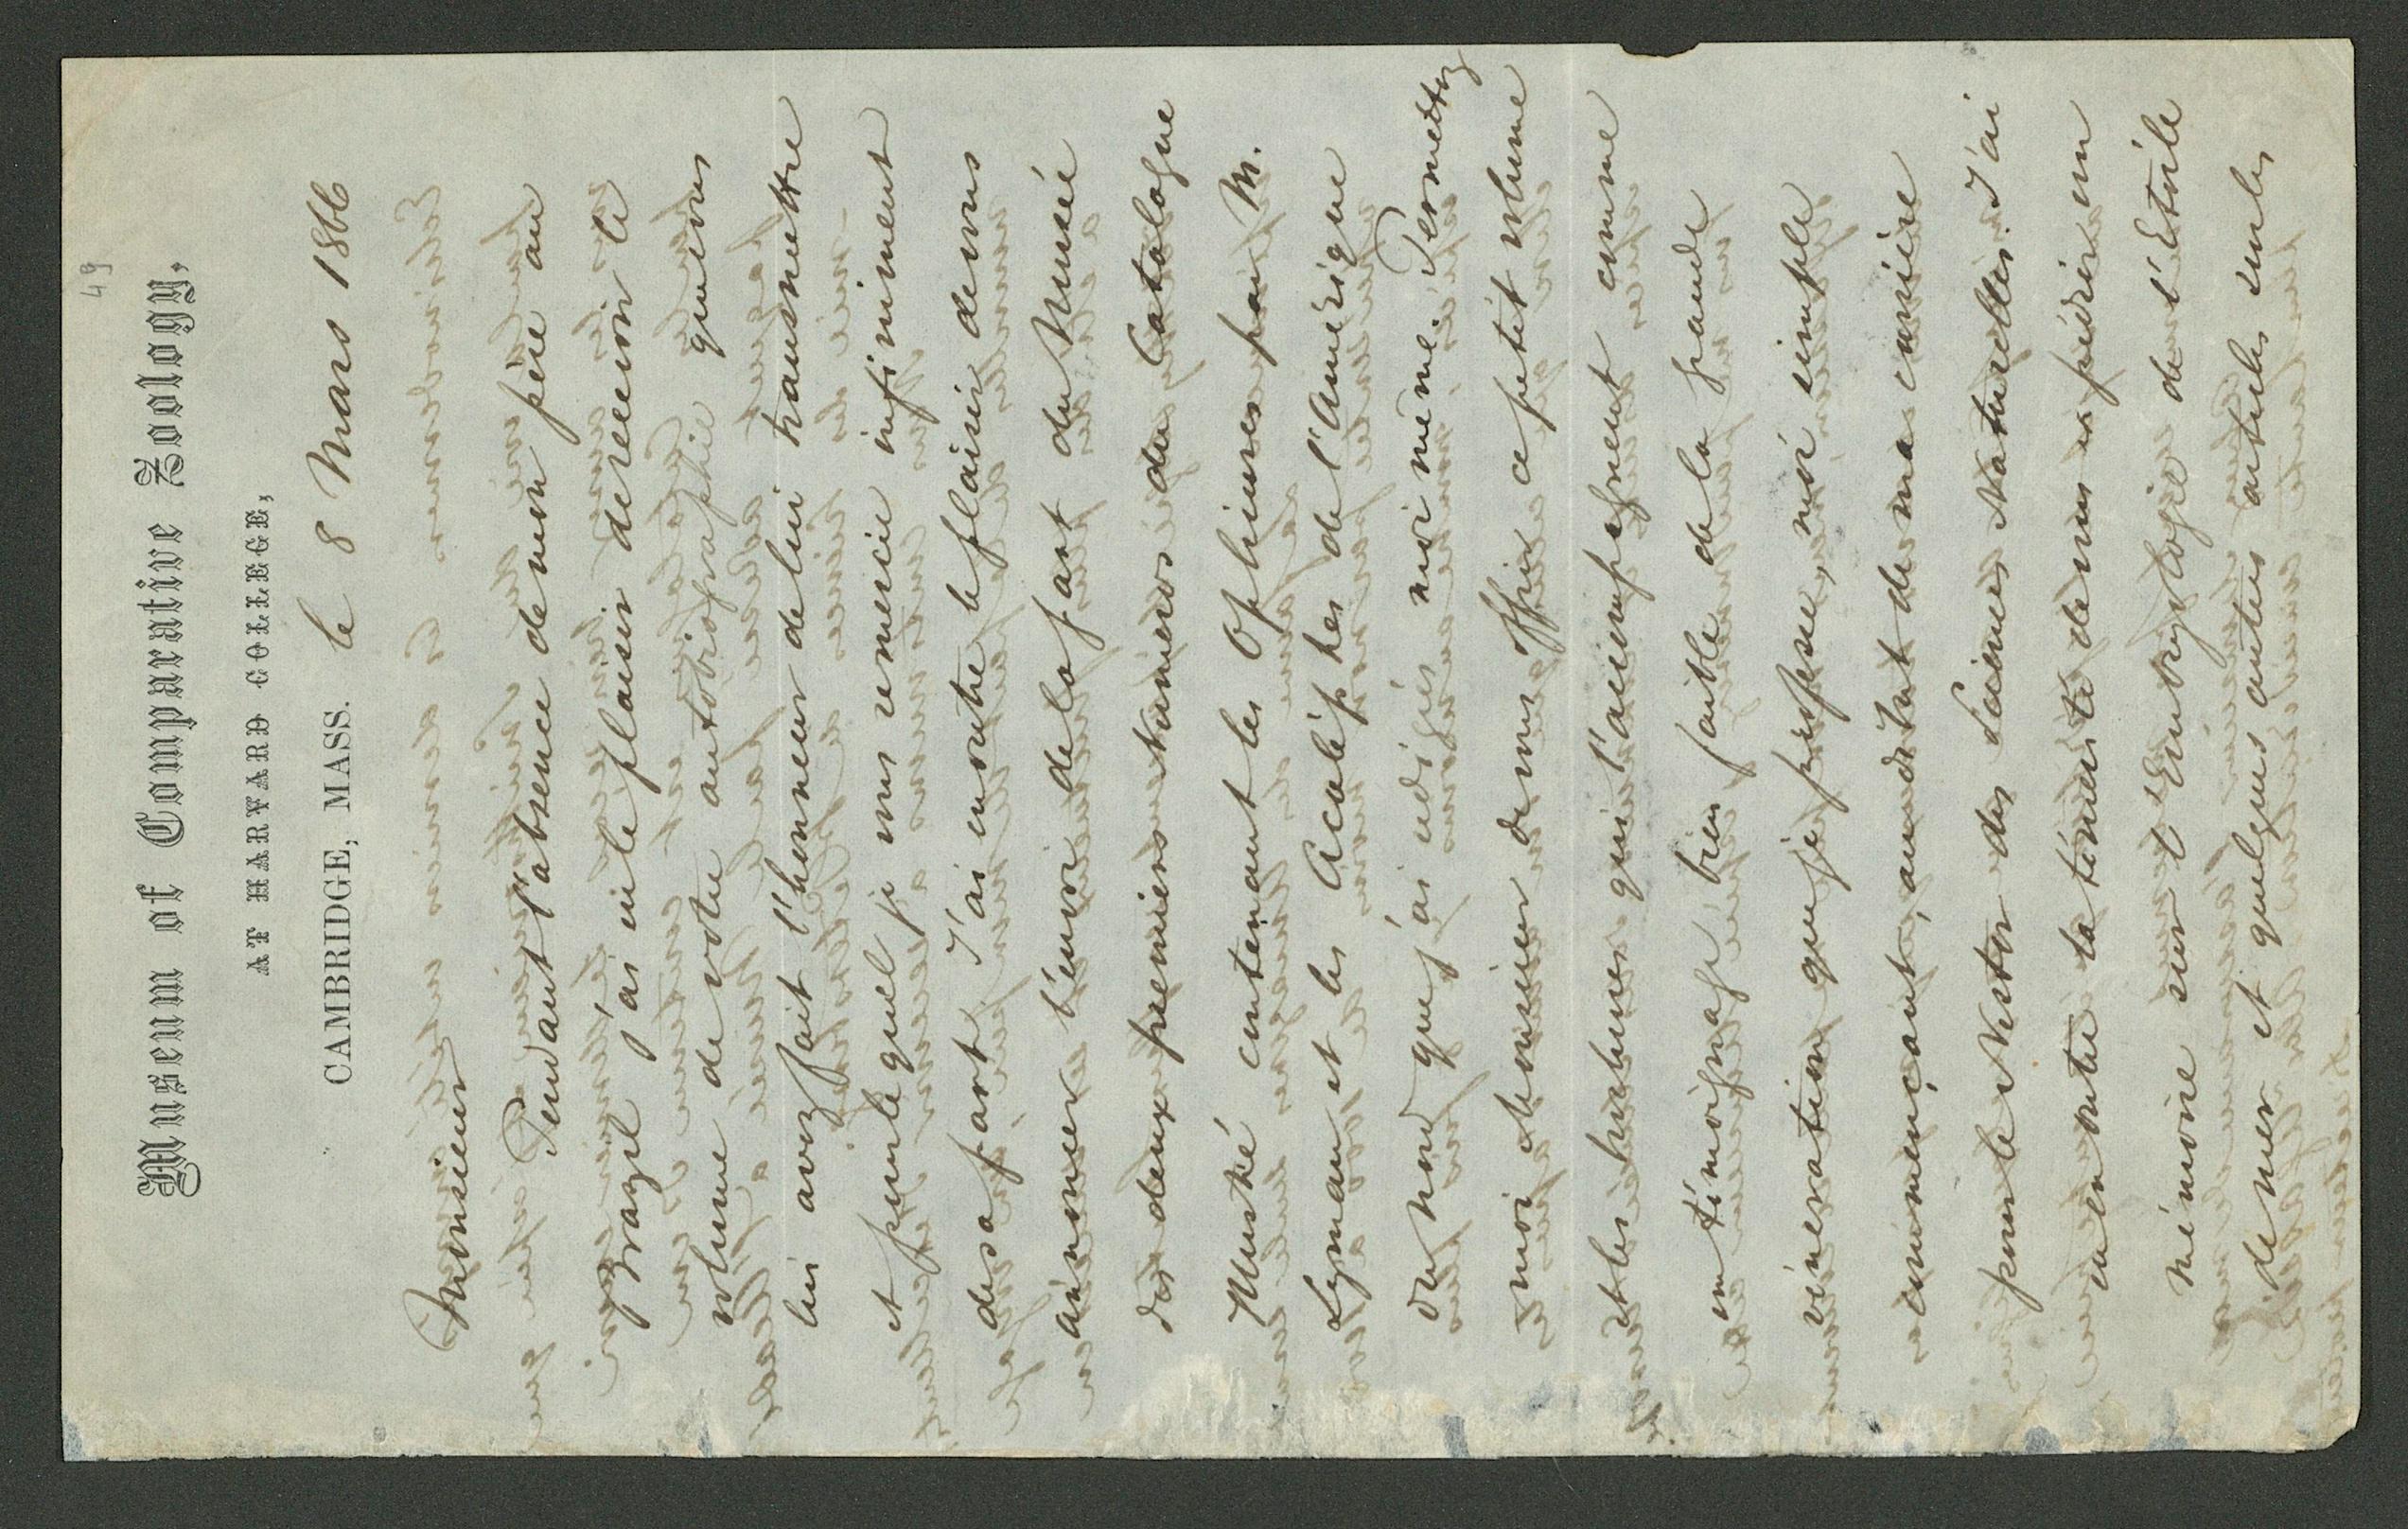 49
Museum of Comparative Zoology,
AT HARVARD COLLEGE,
CAMBRIDGE, MASS. le 8 Mars 1866
Monsieur
Pendant l'absence de mon père au
Brazil j'ai eu le plaisir de recevoir le
volume de votre autobiographie que vous
lui avez fait l'honneur de lui transmettre
et pour lequel je vous remercie infiniment
de sa part. J'ai en outre le plaisir de vous
annoncer l'envoi de la part du Musée
des deux premiers Numeros du Catalogue
Illustré contenant les Ophiures par M.
Lyman et les Acalèphes de l'Amérique
du Nord que j'ai redigés moi même. Permettez
moi Monsieur de vous offrir ce petit volume
et les brochures qui l'accompagnent comme
un témoignage bien faible de la grande
vénération que je professe, moi simple
commençant, au début de ma carrière
pour le Nestor des Sciences Naturelles. J'ai
eu en outre la témérité de vous expédier un
mémoire sur l'Embryologie de l'Etoile
de mer et quelques autres articles sur les